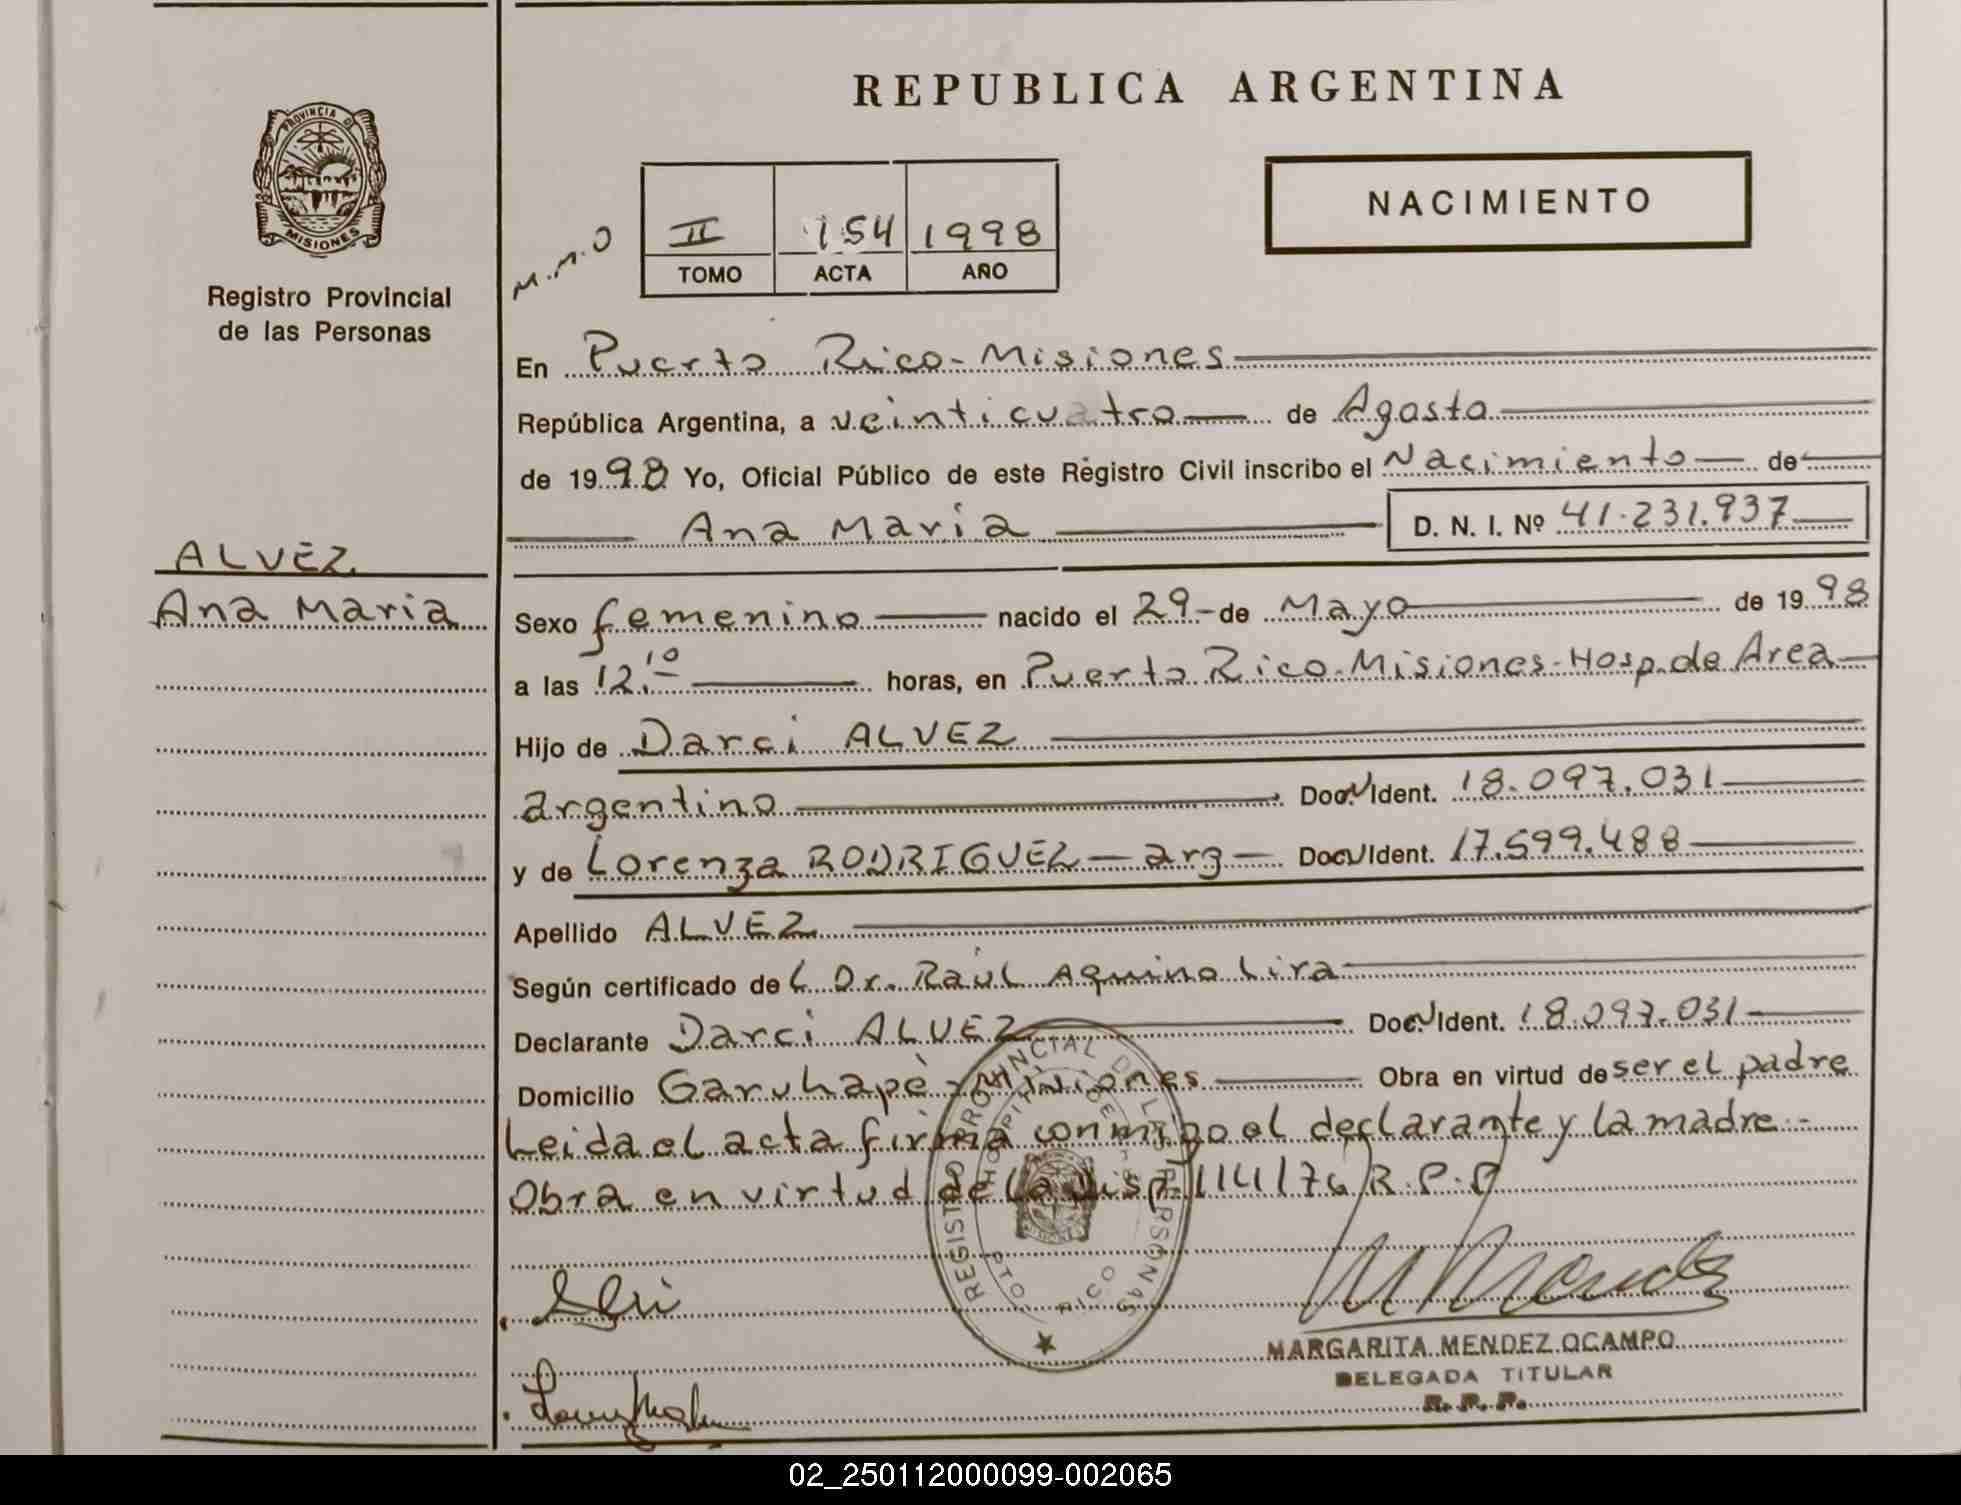 REPUBLICA ARGENTINA
PROVINCIA DE
MISIONES
Registro Provincial
de las Personas
M.M.O
II 154 1998
TOMO ACTA AÑO
NACIMIENTO
En Puerto Rico - Misiones
República Argentina, a veinticuatro de Agosto
de 1998 Yo, Oficial Público de este Registro Civil inscribo el Nacimiento de
Ana Maria D. N. I. Nº 41.231.937
ALVEZ
Ana Maria
Sexo femenino nacido el 29 - de Mayo de 1998
a las 12.10 horas, en Puerto Rico - Misiones - Hosp. de Area
Hijo de Darci ALVEZ
argentino Doc. Ident. 18.097.031
y de Lorenza RODRIGUEZ - arg - Doc. Ident. 17.599.488
Apellido ALVEZ
Según certificado de L Dr. Raúl Aquino Lira
Declarante Darci ALVEZ Doc. Ident. 18.097.031
Domicilio Garuhapé - Misiones Obra en virtud de ser el padre
Leida el acta firma conmigo el declarante y la madre -
Obra en virtud de la Disp. 114/76 R.P.P
REGISTRO PROVINCIAL DE LAS PERSONAS
HOSPITAL DE
PTO RICO
MARGARITA MENDEZ OCAMPO
DELEGADA TITULAR
R. P. P.
02_250112000099-002065